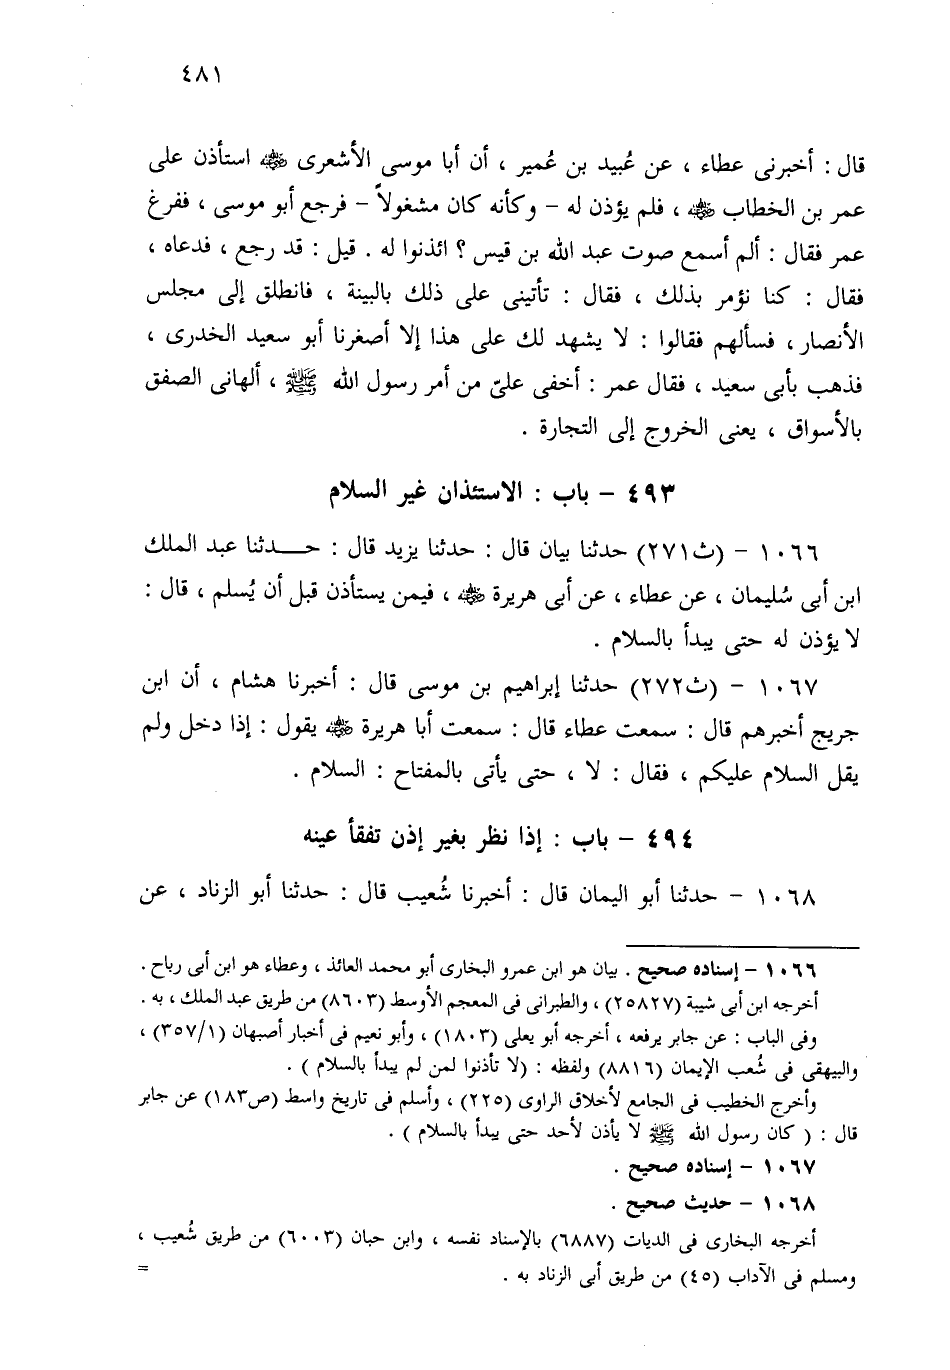 ٤٨١
قال : أخبرنى عطاء ، عن عُبيد بن عُمير ، أن أبا موسى الأشعرى رضي الله عنه استأذن على
عمر بن الخطاب رضي الله عنه ، فلم يؤذن له – وكأنه كان مشغولاً – فرجع أبو موسى ، ففرغ
عمر فقال : ألم أسمع صوت عبد الله بن قيس ؟ ائذنوا له . قيل : قد رجع ، فدعاه ،
فقال : كنا نؤمر بذلك ، فقال : تأتينى على ذلك بالبينة ، فانطلق إلى مجلس
الأنصار ، فسألهم فقالوا : لا يشهد لك على هذا إلا أصغرنا أبو سعيد الخدرى ،
فذهب بأبى سعيد ، فقال عمر : أخفى علىّ من أمر رسول الله ﷺ ، ألهانى الصفق
بالأسواق ، يعنى الخروج إلى التجارة .
٤٩٣ – باب : الاستئذان غير السلام
١٠٦٦ – (ث٢٧١) حدثنا بيان قال : حدثنا يزيد قال : حـــدثنا عبد الملك
ابن أبى سُليمان ، عن عطاء ، عن أبى هريرة رضي الله عنه ، فيمن يستأذن قبل أن يُسلم ، قال :
لا يؤذن له حتى يبدأ بالسلام .
١٠٦٧ – (ث٢٧٢) حدثنا إبراهيم بن موسى قال : أخبرنا هشام ، أن ابن
جريج أخبرهم قال : سمعت عطاء قال : سمعت أبا هريرة رضي الله عنه يقول : إذا دخل ولم
يقل السلام عليكم ، فقال : لا ، حتى يأتى بالمفتاح : السلام .
٤٩٤ – باب : إذا نظر بغير إذن تفقأ عينه
١٠٦٨ – حدثنا أبو اليمان قال : أخبرنا شُعيب قال : حدثنا أبو الزناد ، عن
١٠٦٦ – إسناده صحيح . بيان هو ابن عمرو البخارى أبو محمد العائذ ، وعطاء هو ابن أبى رباح .
أخرجه ابن أبى شيبة (٢٥٨٢٧) ، والطبرانى فى المعجم الأوسط (٨٦٠٣) من طريق عبد الملك ، به .
وفى الباب : عن جابر يرفعه ، أخرجه أبو يعلى (١٨٠٣) ، وأبو نعيم فى أخبار أصبهان (٣٥٧/١) ،
والبيهقى فى شُعب الإيمان (٨٨١٦) ولفظه : (لا تأذنوا لمن لم يبدأ بالسلام ) .
وأخرج الخطيب فى الجامع لأخلاق الراوى (٢٢٥) ، وأسلم فى تاريخ واسط (ص١٨٣) عن جابر
قال : ( كان رسول الله ﷺ لا يأذن لأحد حتى يبدأ بالسلام ) .
١٠٦٧ – إسناده صحيح .
١٠٦٨ – حديث صحيح .
أخرجه البخارى فى الديات (٦٨٨٧) بالإسناد نفسه ، وابن حبان (٦٠٠٣) من طريق شُعيب ،
ومسلم فى الآداب (٤٥) من طريق أبى الزناد به . =